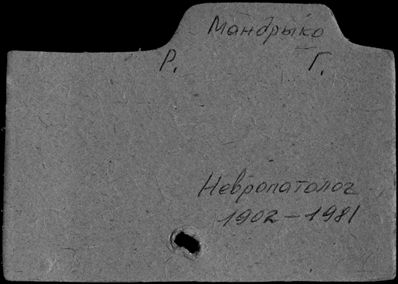 Мандрыко
Р. Г.
Невропатолог
1902 - 1981